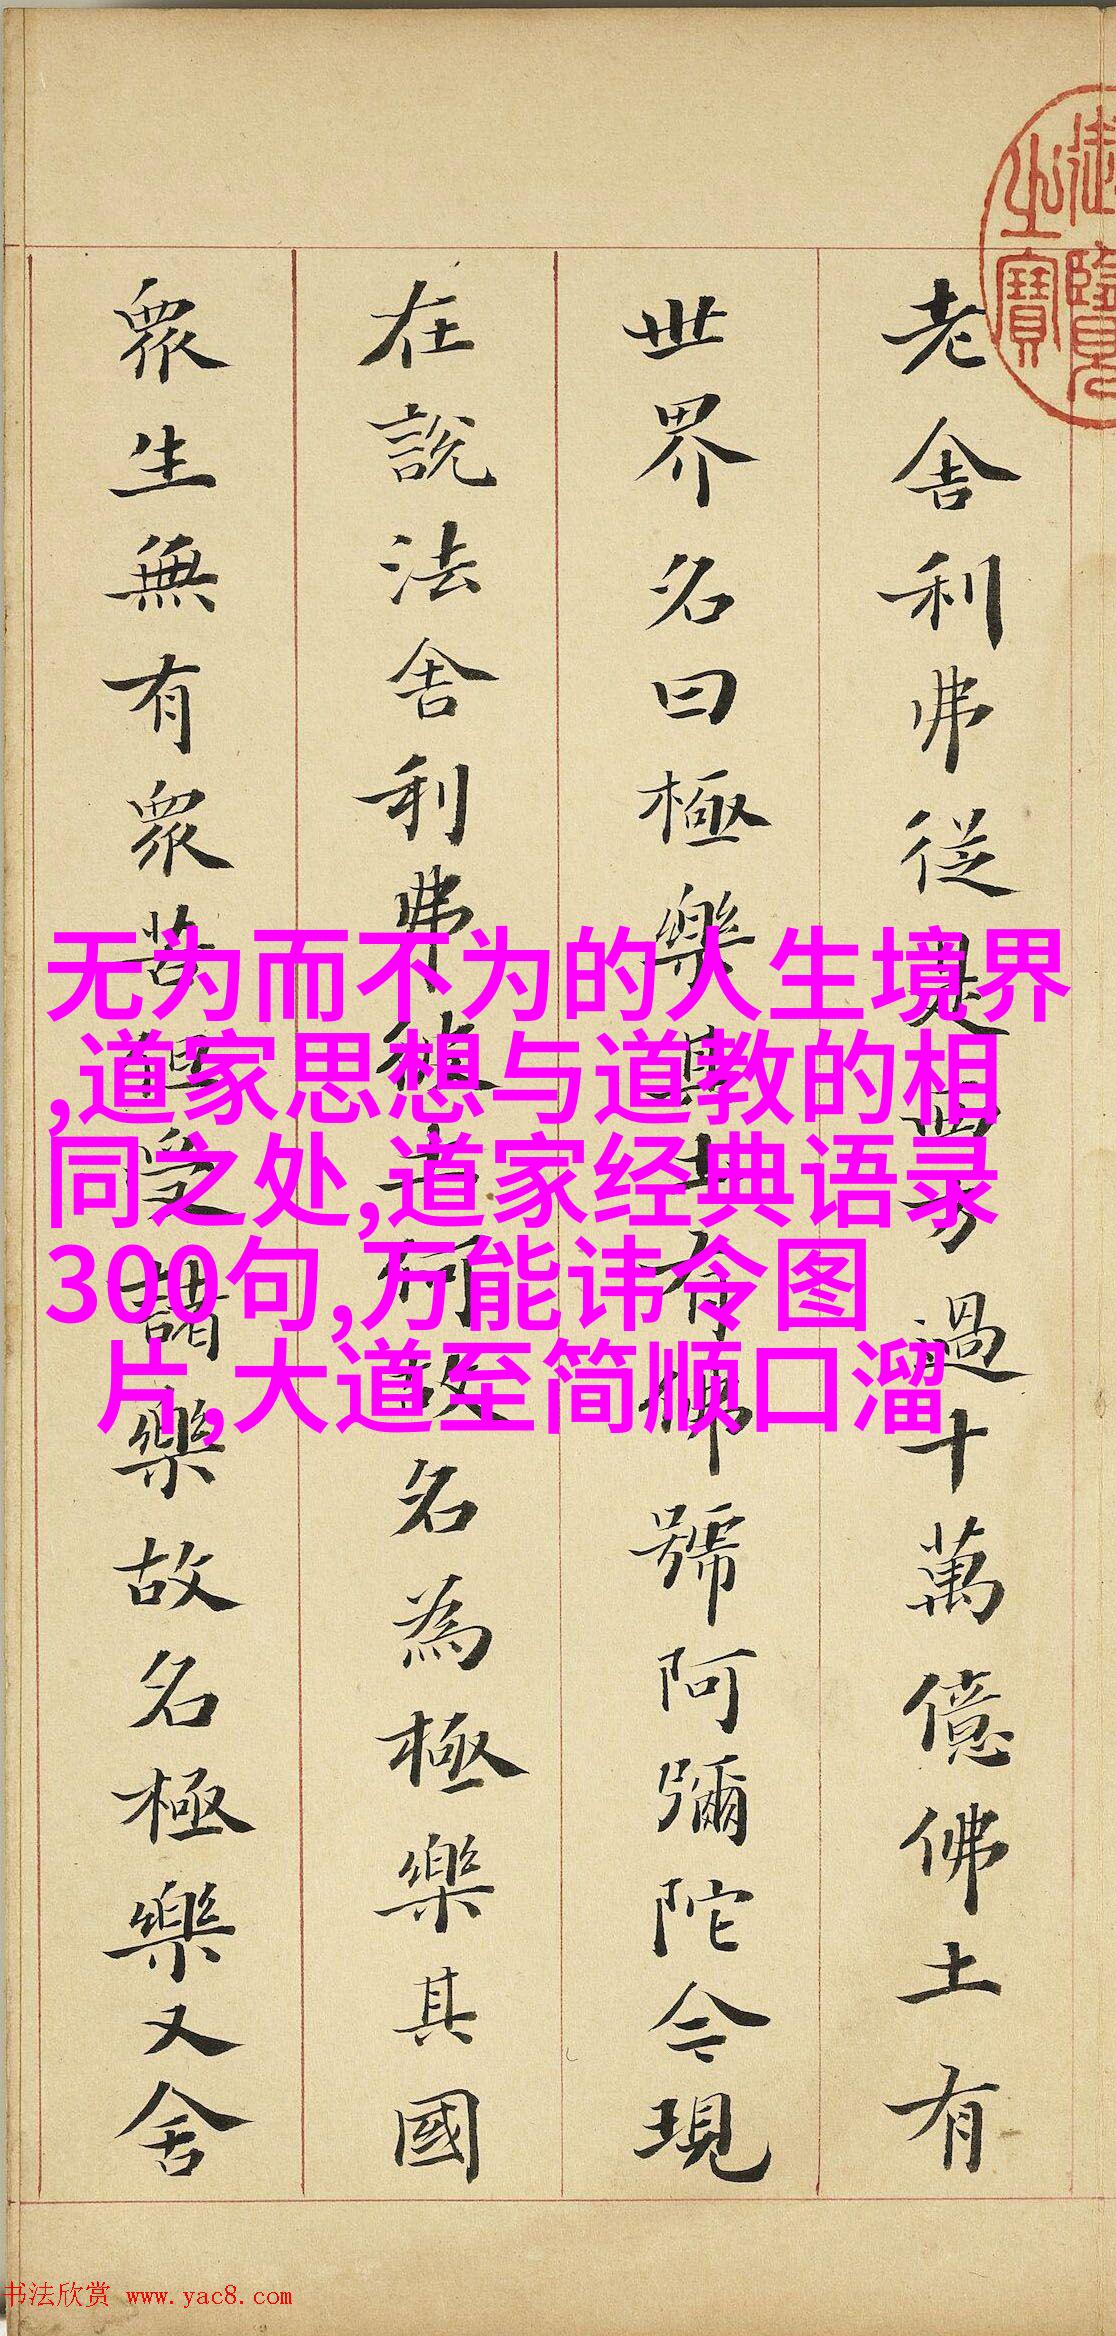 御覽之寶
老舍利弗從是西方過十萬億佛土有
世界名曰極樂其土有佛號阿彌陀今現
在說法舍利弗彼土何故名為極樂其國
眾生無有眾苦但受諸樂故名極樂又舍
无为而不为的人生境界
,道家思想与道教的相
同之处,道家经典语录
300句,万能讳令图
片,大道至简顺口溜
书法欣赏 www.yac8.com